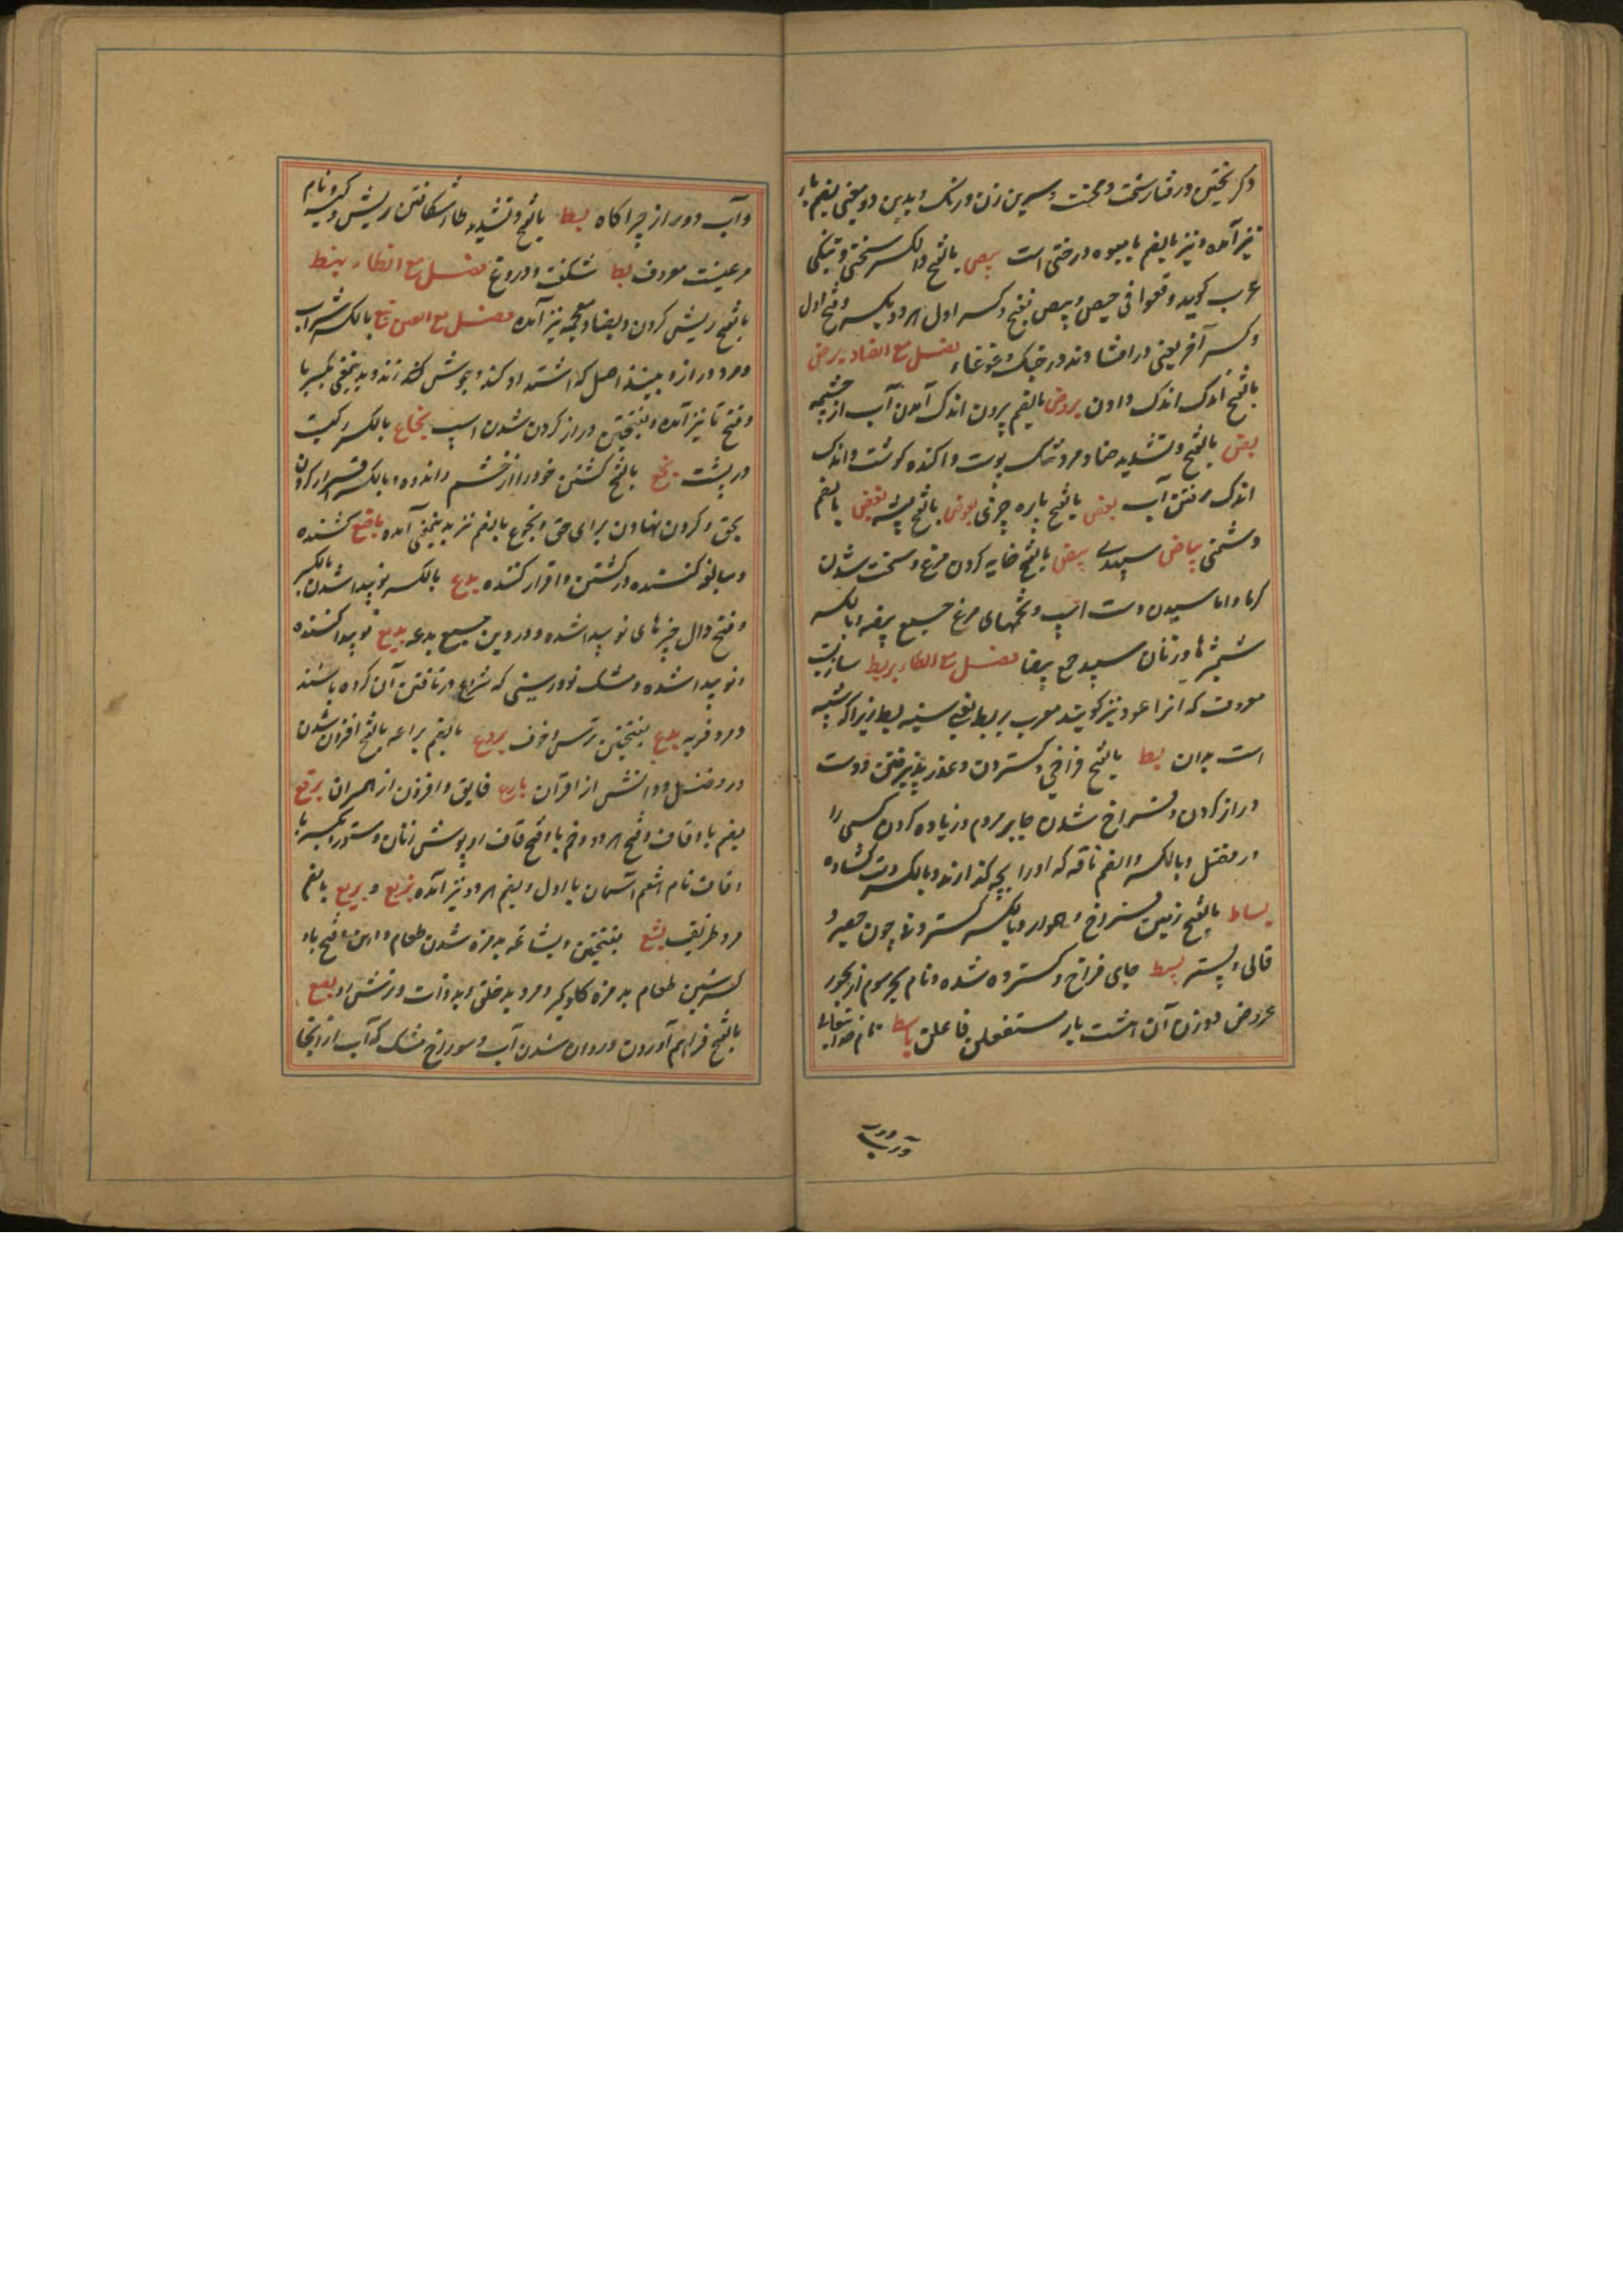 و گریختن و رفتار سخت و محنت و سرین زن و رنگ و بدین دو معنی بضم با
نیز آمده و نیز بالضم با میوه درختی است بیص بالفتح والکسر سختی و تنگی
عرب گوید وقعوا فی حیص و بیص بفتح و کسر اول هر دو و بکسر و فتح اول
و کسر آخر یعنی در افتادند در جنگ و غوغا فصل مع الضاد برض
بالفتح اندک اندک دادن بروض بالضم بیرون اندک آمدن آب از چشمه
بض بالفتح و تشدید ضاد مرد تنک پوست و آکنده گوشت و اندک
اندک رفتن آب بعض بالفتح پاره چیزی بعوض بالفتح پشه بغض بالضم
دشمنی بیاض سپیدی بیض بالفتح خایه کردن مرغ و سخت شدن
گرما و اماسیدن دست اسپ و تخمهای مرغ جمیع بیضه و بالکسر
شمشیرها و زنان سپید جمع بیضا فصل مع الطاء بربط سازیست
معروف که انرا عود نیز گویند معرب بربط یعنی سینه بط زیرا که شبیه
است بدان بسط بالفتح فراخی و گستردن و عذر پذیرفتن و دست
دراز کردن و فراخ شدن جا بر مردم و زیاده کردن کسی را
در فضل و بالکسر والضم ناقه که او را بچه گذارند و بالکسر دست گشاده
بساط بالفتح زمین فراخ و هموار و بالکسر گستردنی چون حصیر و
قالی و بستر بسیط جای فراخ و گسترده شده و نام بحر سوم از بحور
عروض و وزن آن هشت بار مستفعلن فاعلن باسط نام خدایتعالی
و آب دور
و آب دور از چراگاه بط بالفتح و تشدید طا شکافتن ریش و کیسه و نام
مرغیست معروف بط شکفت و دروغ فصل مع الظاء بهظ
بالفتح ریش کردن و بضاد معجمه نیز آمده فصل مع العین بتع بالکسر شراب
و مرد دراز و بنیذ اصل که اشتداد کند و جوش کف زند و بدینمعنی بکسر با
و فتح تا نیز آمده و بفتحتین دراز گردن شدن اسپ بخاع بالکسر رگیست
در پشت بخع بالفتح کشتن خود را از خشم و اندوه و بالکسر اقرار کردن
بحق و گردن نهادن برای حق و بخوع بالضم نیز بدینمعنی آمده باخع کشنده
و مبالغه کننده در کشتن و اقرار کننده بدع بالکسر نو پیدا شدن بالکسر
و فتح دال چیزهای نو پیدا شده و در دین جمیع بدعه بدیع نو پیدا کننده
و نو پیدا شده و مشک نو و رسنی که شروع در تافتن آن کرده باشند
و مرد فربه بدع بفتحتین ترس و خوف بروع بالضم براعه بالفتح افزون شدن
در فضل و دانش از اقران بارع فایق و افزون از همسران برقع
بضم با و قاف و فتح هر دو و ضم با و فتح قاف رو پوش زنان و ستور و بکسر با
و قاف نام هفتم آسمان یا اول و بضم هر دو نیز آمده بزیع و بریع بالضم
مرد ظریف بشع بفتحتین و بشاعه بدمزه شدن طعام و دهن و فتح با و
کسر شین طعام بدمزه گلوگیر و مرد بدخلق و بد ذات و زشت رو بضع
بالفتح فراهم آوردن و روان شدن آب و سوراخ مشک که آب از انجا